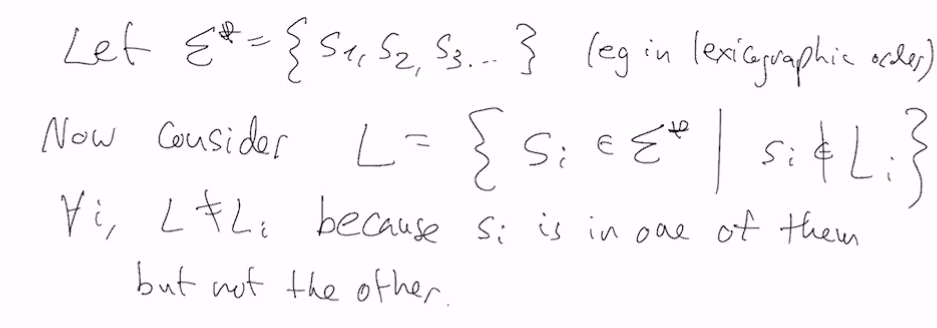 Let Σ* = { s₁, s₂, s₃... } (eg in lexicographic order)
Now consider L = { sᵢ ∈ Σ* | sᵢ ∉ Lᵢ }
∀i, L ≠ Lᵢ because sᵢ is in one of them
but not the other.